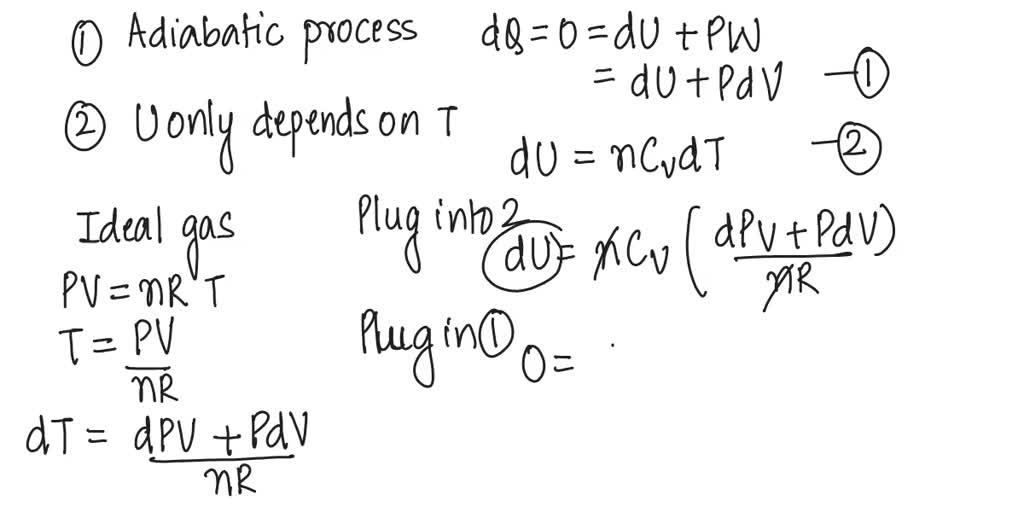 ① Adiabatic process dQ = 0 = dU + PW
= dU + PdV —①
② U only depends on T
dU = nCvdT —②
Ideal gas
PV = nRT
T = PV/nR
dT = dPV + PdV/nR
Plug into 2
dU = nCv (dPV + PdV/nR)
Plug in ①
0 =